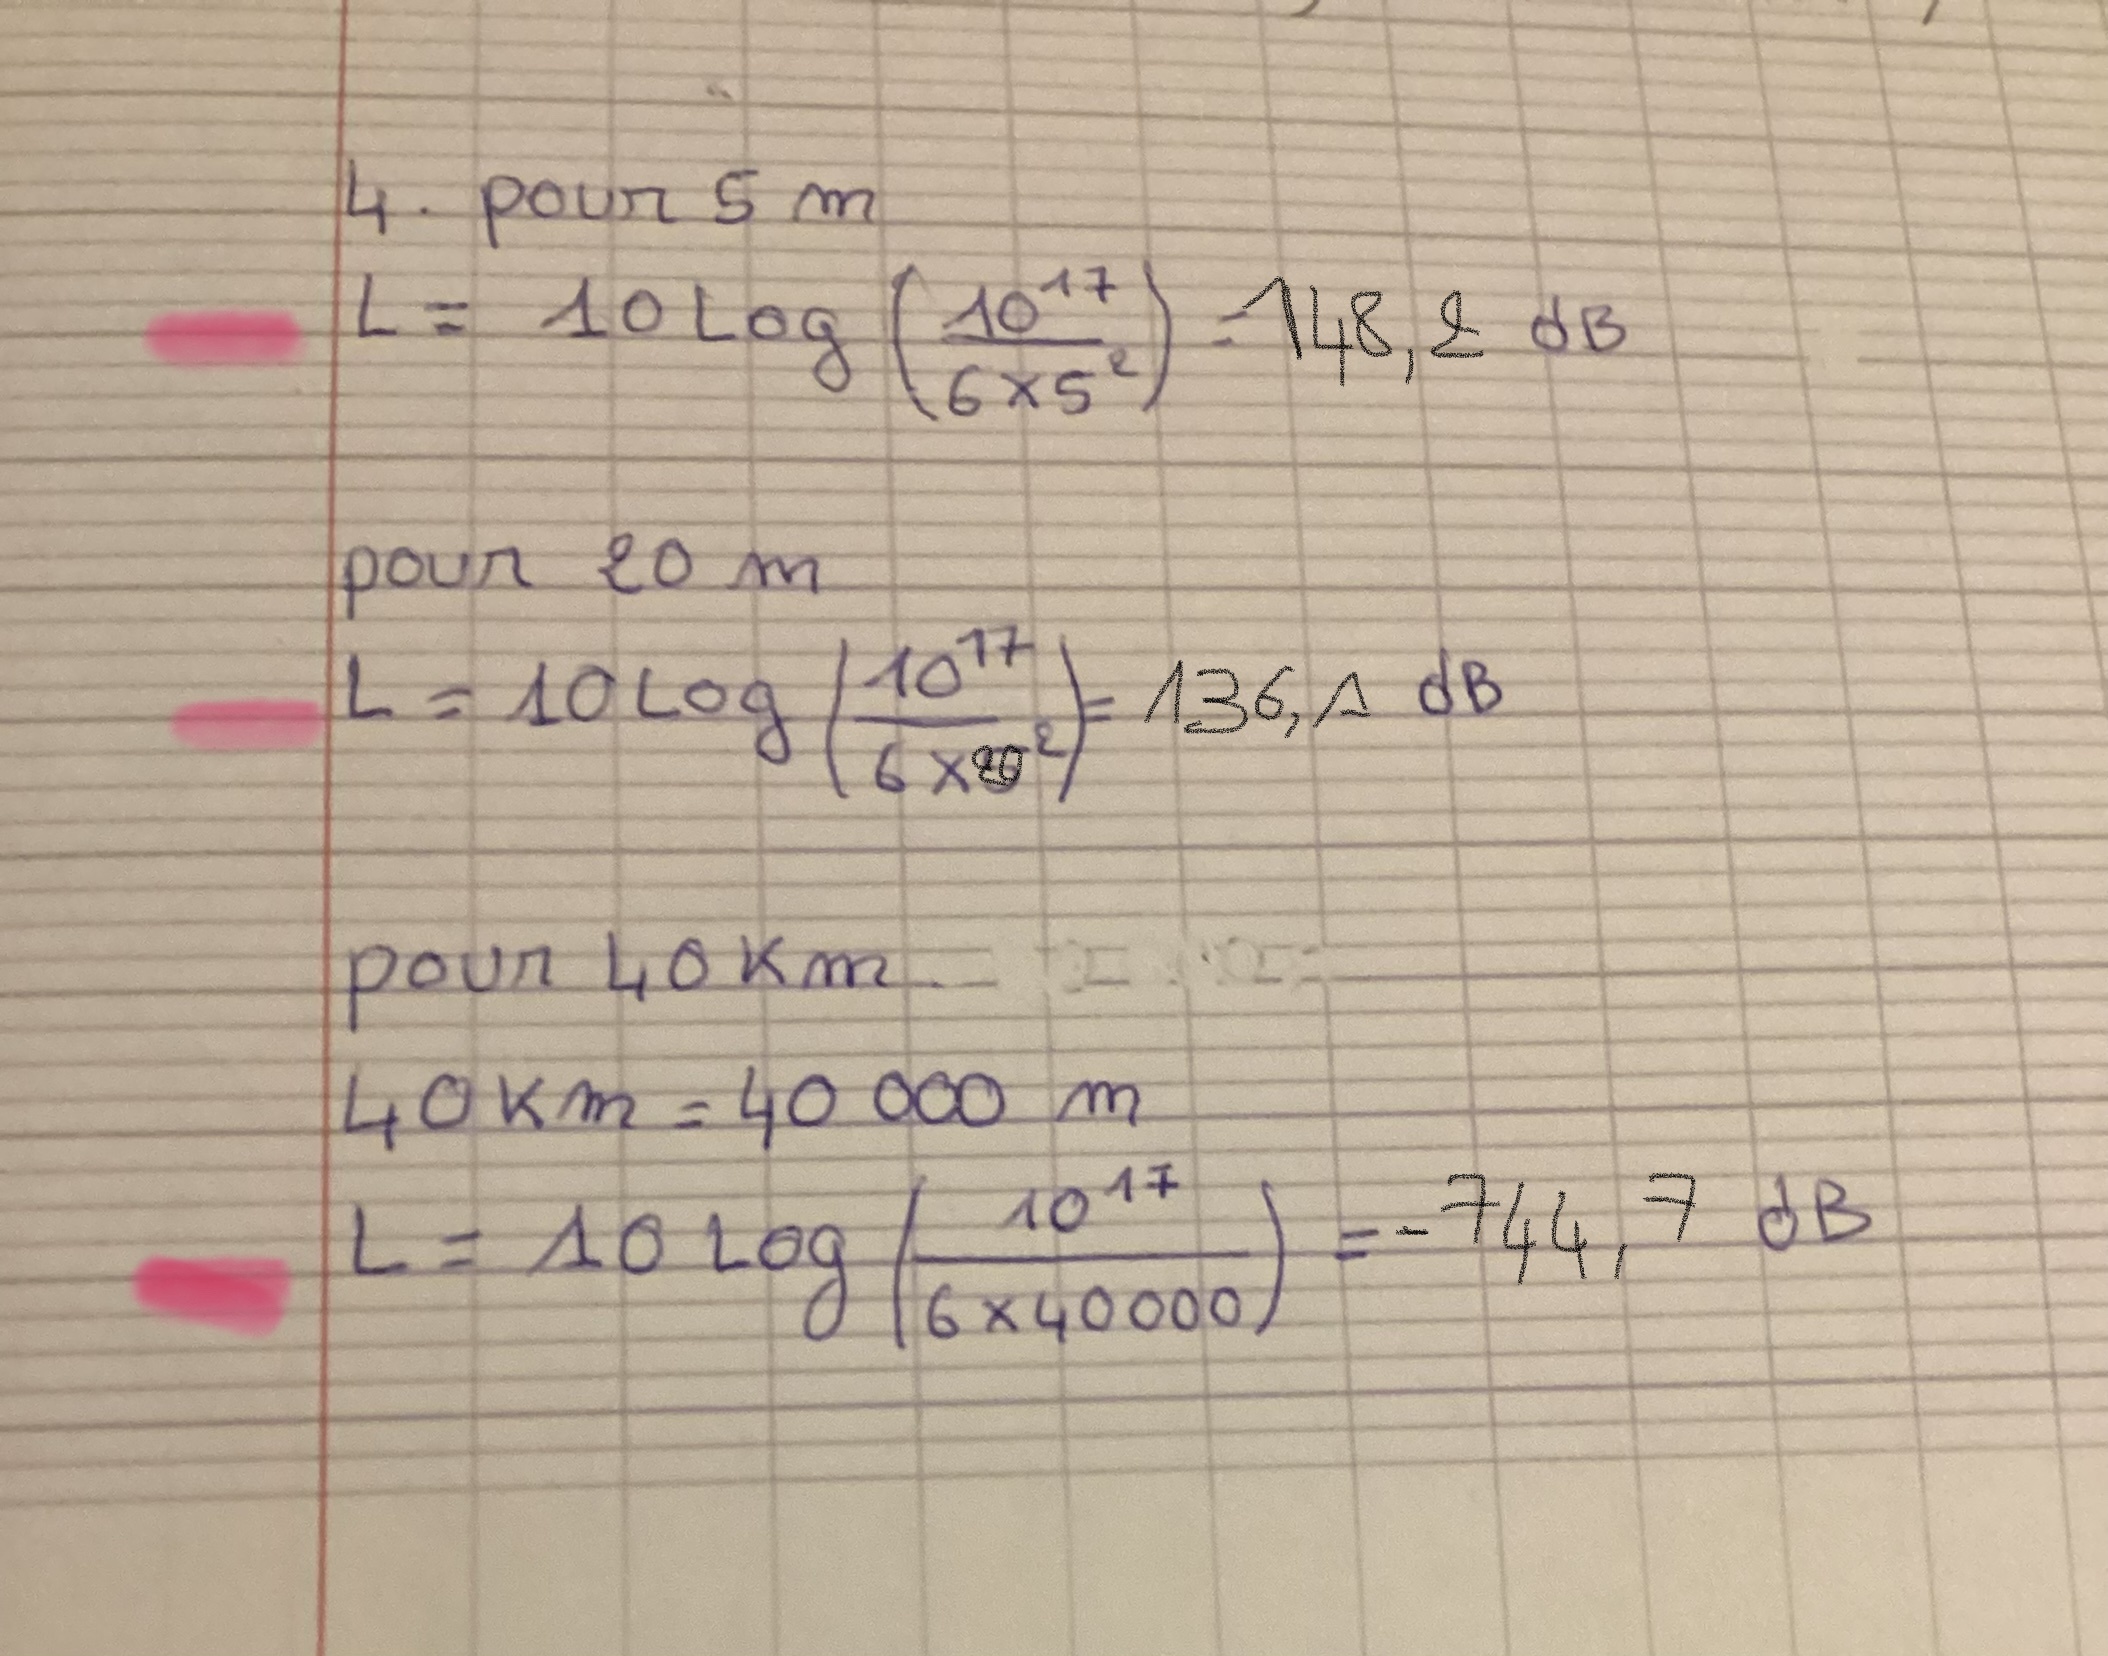 4. pour 5 m
L = 10 Log (10^17 / 6×5²) = 148,2 dB
pour 20 m
L = 10 Log (10^17 / 6×20²) = 136,1 dB
pour 40 Km
40 Km = 40 000 m
L = 10 Log (10^17 / 6×40000) = -744,7 dB